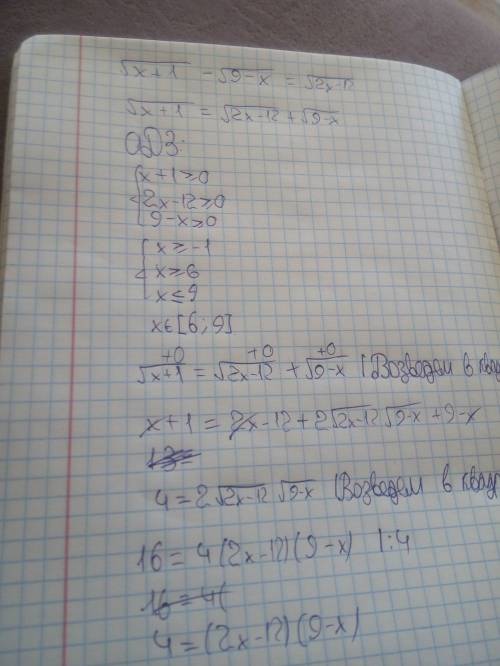 √x+1 - √9-x = √2x-12
√x+1 = √2x-12 + √9-x
ОДЗ:
x+1≥0
2x-12≥0
9-x≥0
x≥-1
x≥6
x≤9
x∈[6;9]
+0 +0 +0
√x+1 = √2x-12 + √9-x | Возведем в квад
x+1 = 2x-12+2√2x-12 √9-x +9-x
4=2√2x-12 √9-x |Возведем в квадр
16=4(2x-12)(9-x) |:4
16=4(
4=(2x-12)(9-x)